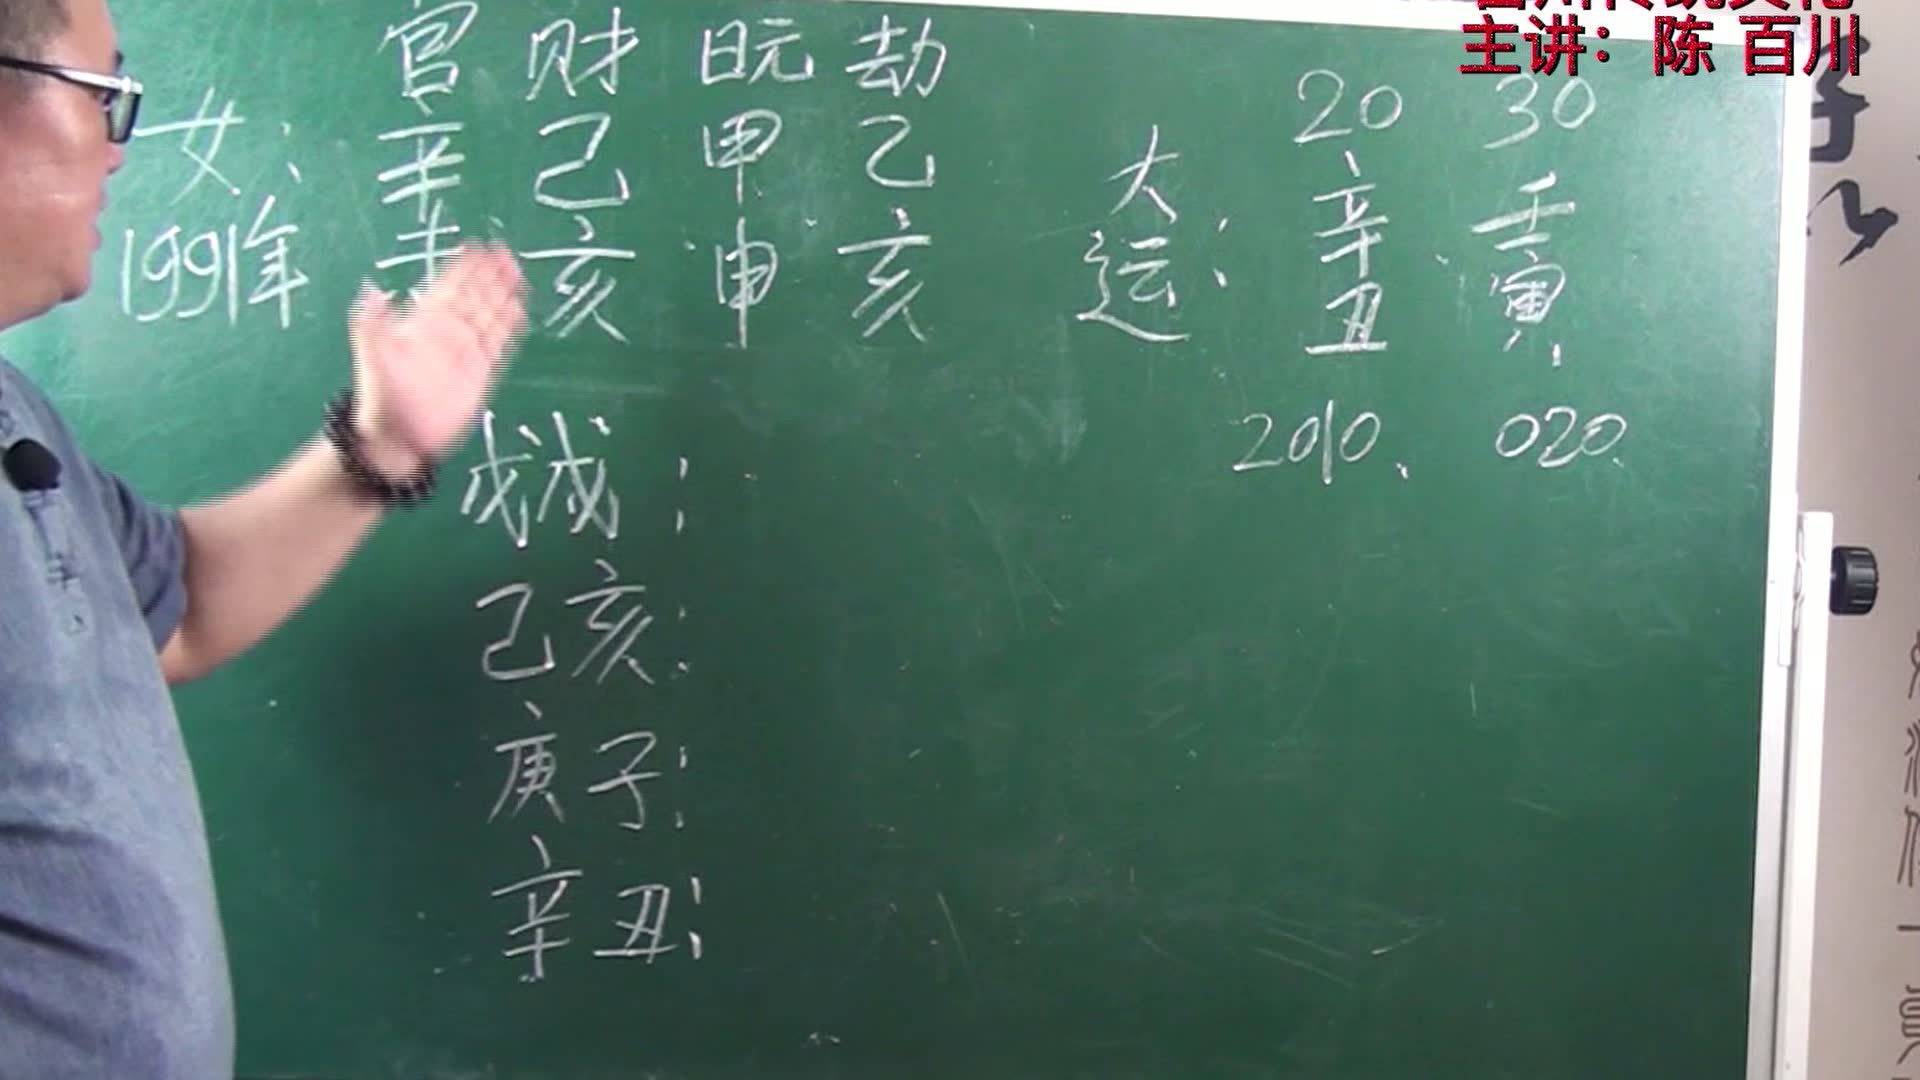 主讲：陈 百川
官 财 日元 劫
女： 辛 己 甲 乙
1991年 亥 申 亥
20 30
大运： 辛丑 壬寅
2010、 020
戊戌：
己亥：
庚子：
辛丑：